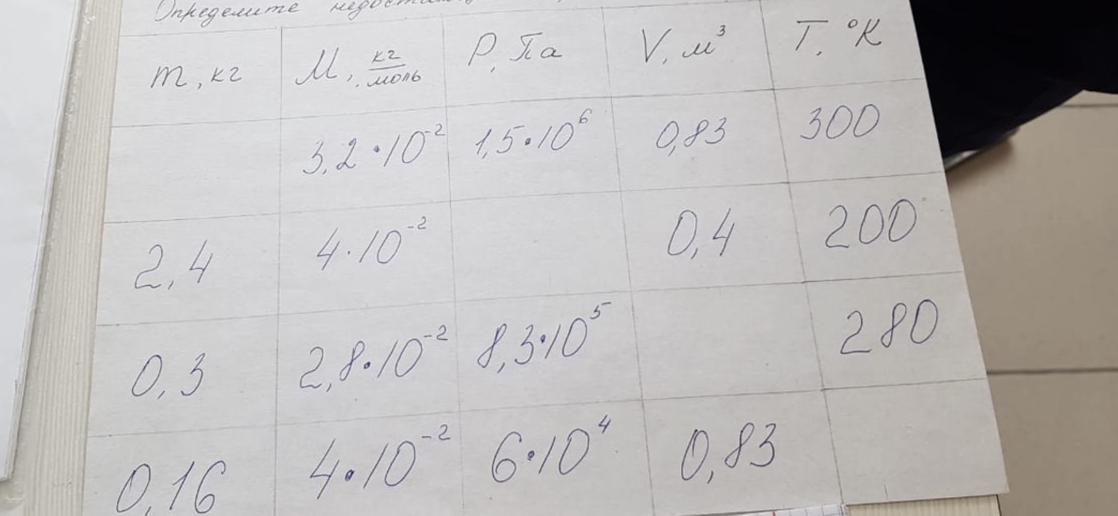 Определите
m, кг M, кг/моль P, Па V, м³ T, °K
3,2·10⁻² 1,5·10⁶ 0,83 300
2,4 4·10⁻² 0,4 200
0,3 2,8·10⁻² 8,3·10⁵ 280
0,16 4·10⁻² 6·10⁴ 0,83